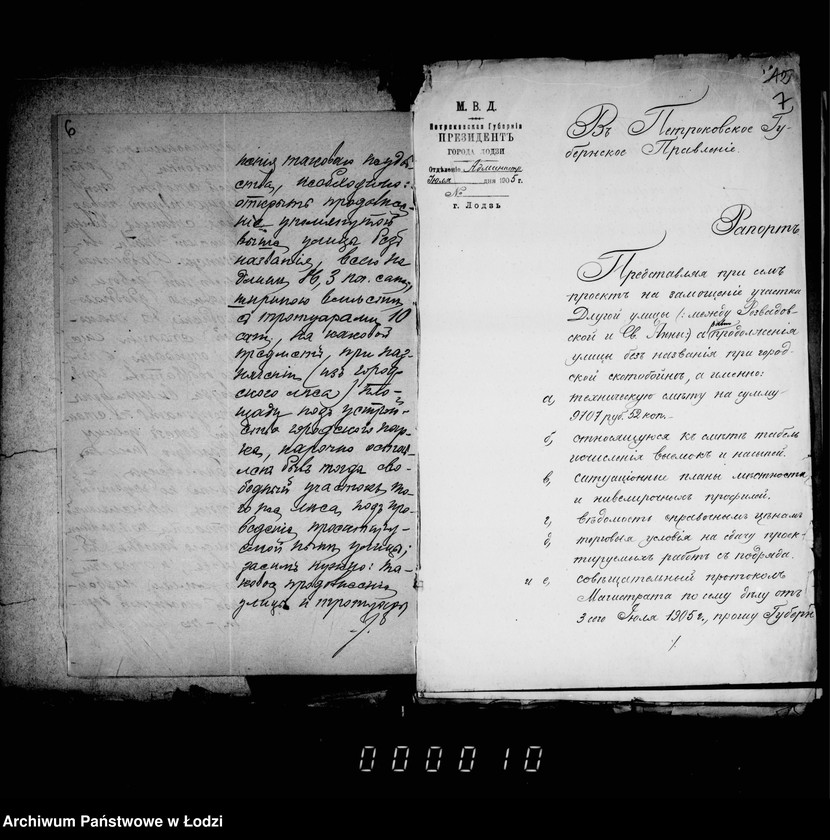 6
нія таковаго неудоб
ства, необходимо:
открыть продолже-
ніе упомянутой
выше улицы безъ
названія, всего на
длину 116,3 по. саж.
шириною вмѣстѣ
съ тротуарами 10
саж, на каковой
предметъ, при наз-
наченіи (изъ город-
ского лѣса) пло-
щади подъ устрой-
ство городского пар-
ка, нарочно остав-
ленъ былъ тогда сво-
бодный участокъ то-
го же лѣса подъ про-
веденіе проектиру-
емой нынѣ улицы;
засимъ нужно: та-
ковое продолженіе
улицы и тротуары
7
М. В. Д.
Петроковская Губернія
ПРЕЗИДЕНТЪ
ГОРОДА ЛОДЗИ
Отдѣленіе Администр
Іюля дня 1905 г.
№
г. Лодзь
Въ Петроковское Гу-
бернское Правленіе.
Рапортъ
Представляя при семъ
проектъ на замощеніе участка
Длугой улицы (: между Розвадов-
ской и Св. Анны:) а продолженія
улицы безъ названія при город-
ской скотобойнѣ, а именно:
а, техническую смѣту на сумму
9707 руб. 52 коп.-
б, относящуюся къ смѣтѣ табель
исчисленія выемокъ и насыпей.
в, ситуаціонные планы мѣстности
и нивелирныхъ профилей.
г, вѣдомость справочнымъ цѣнамъ
д, торговыя условія на сдачу проек-
тируемыхъ работъ съ подряда.
и е, совѣщательный протоколъ
Магистрата по сему дѣлу отъ
3 сего Іюля 1905 г., прошу Губерн
000010
Archiwum Państwowe w Łodzi